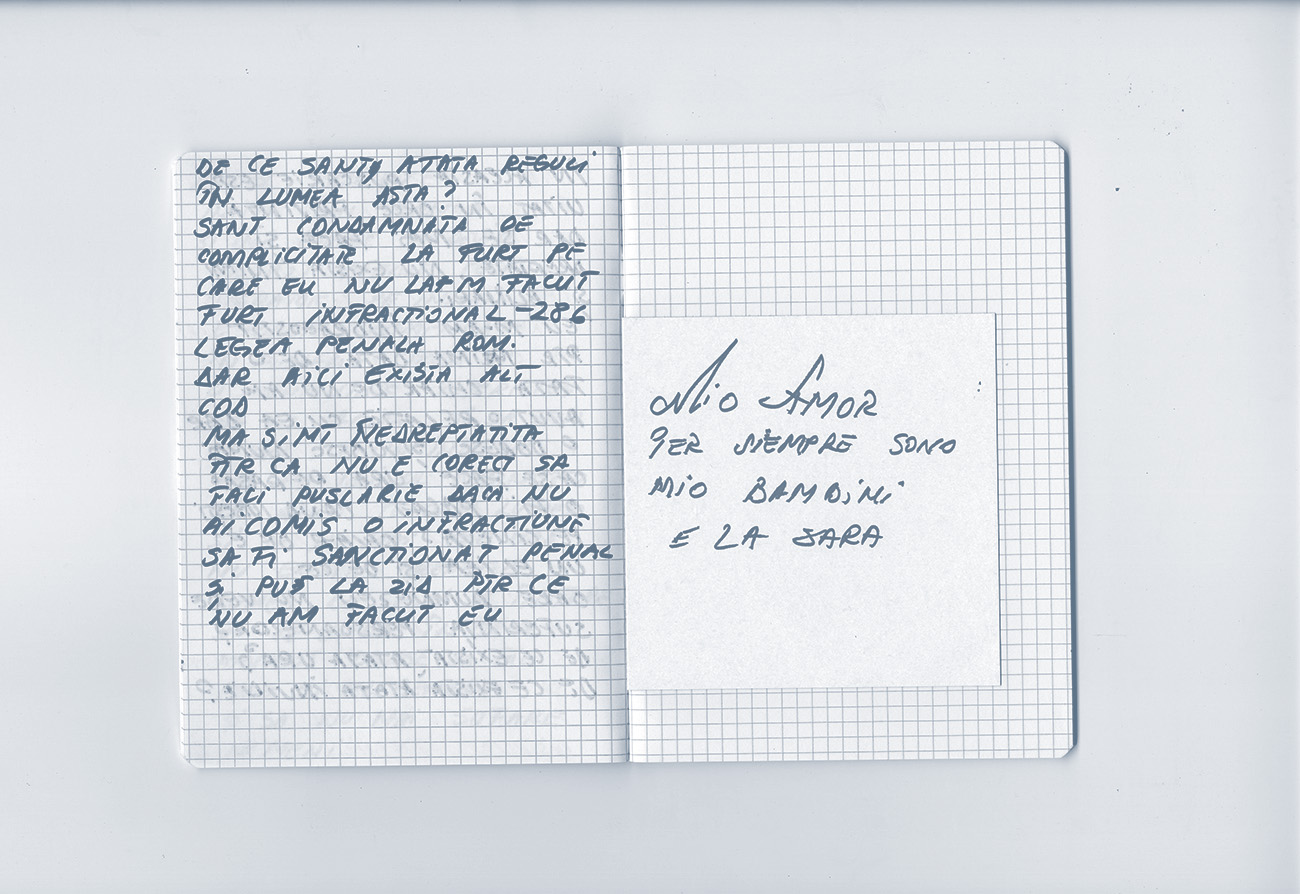 DE CE SANT ATATA REGULI
ÎN LUMEA ASTA?
SANT CONDAMNATA DE
COMPLICITATE LA FURT PE
CARE EU NU LAM FACUT
FURT INFRACTIONAL -286
LEGEA PENALA ROM.
DAR AICI EXISTA ALT
COD
MA SIMT NEDREPTATITA
PTR CA NU E CORECT SA
FACI PUSLARIE DACA NU
AI COMIS O INFRACTIUNE
SA FI SANCTIONAT PENAL
SI PUS LA ZID PTR CE
NU AM FACUT EU
MIO AMOR
PER SIEMPRE SONO
MIO BAMBINI
E LA SARA